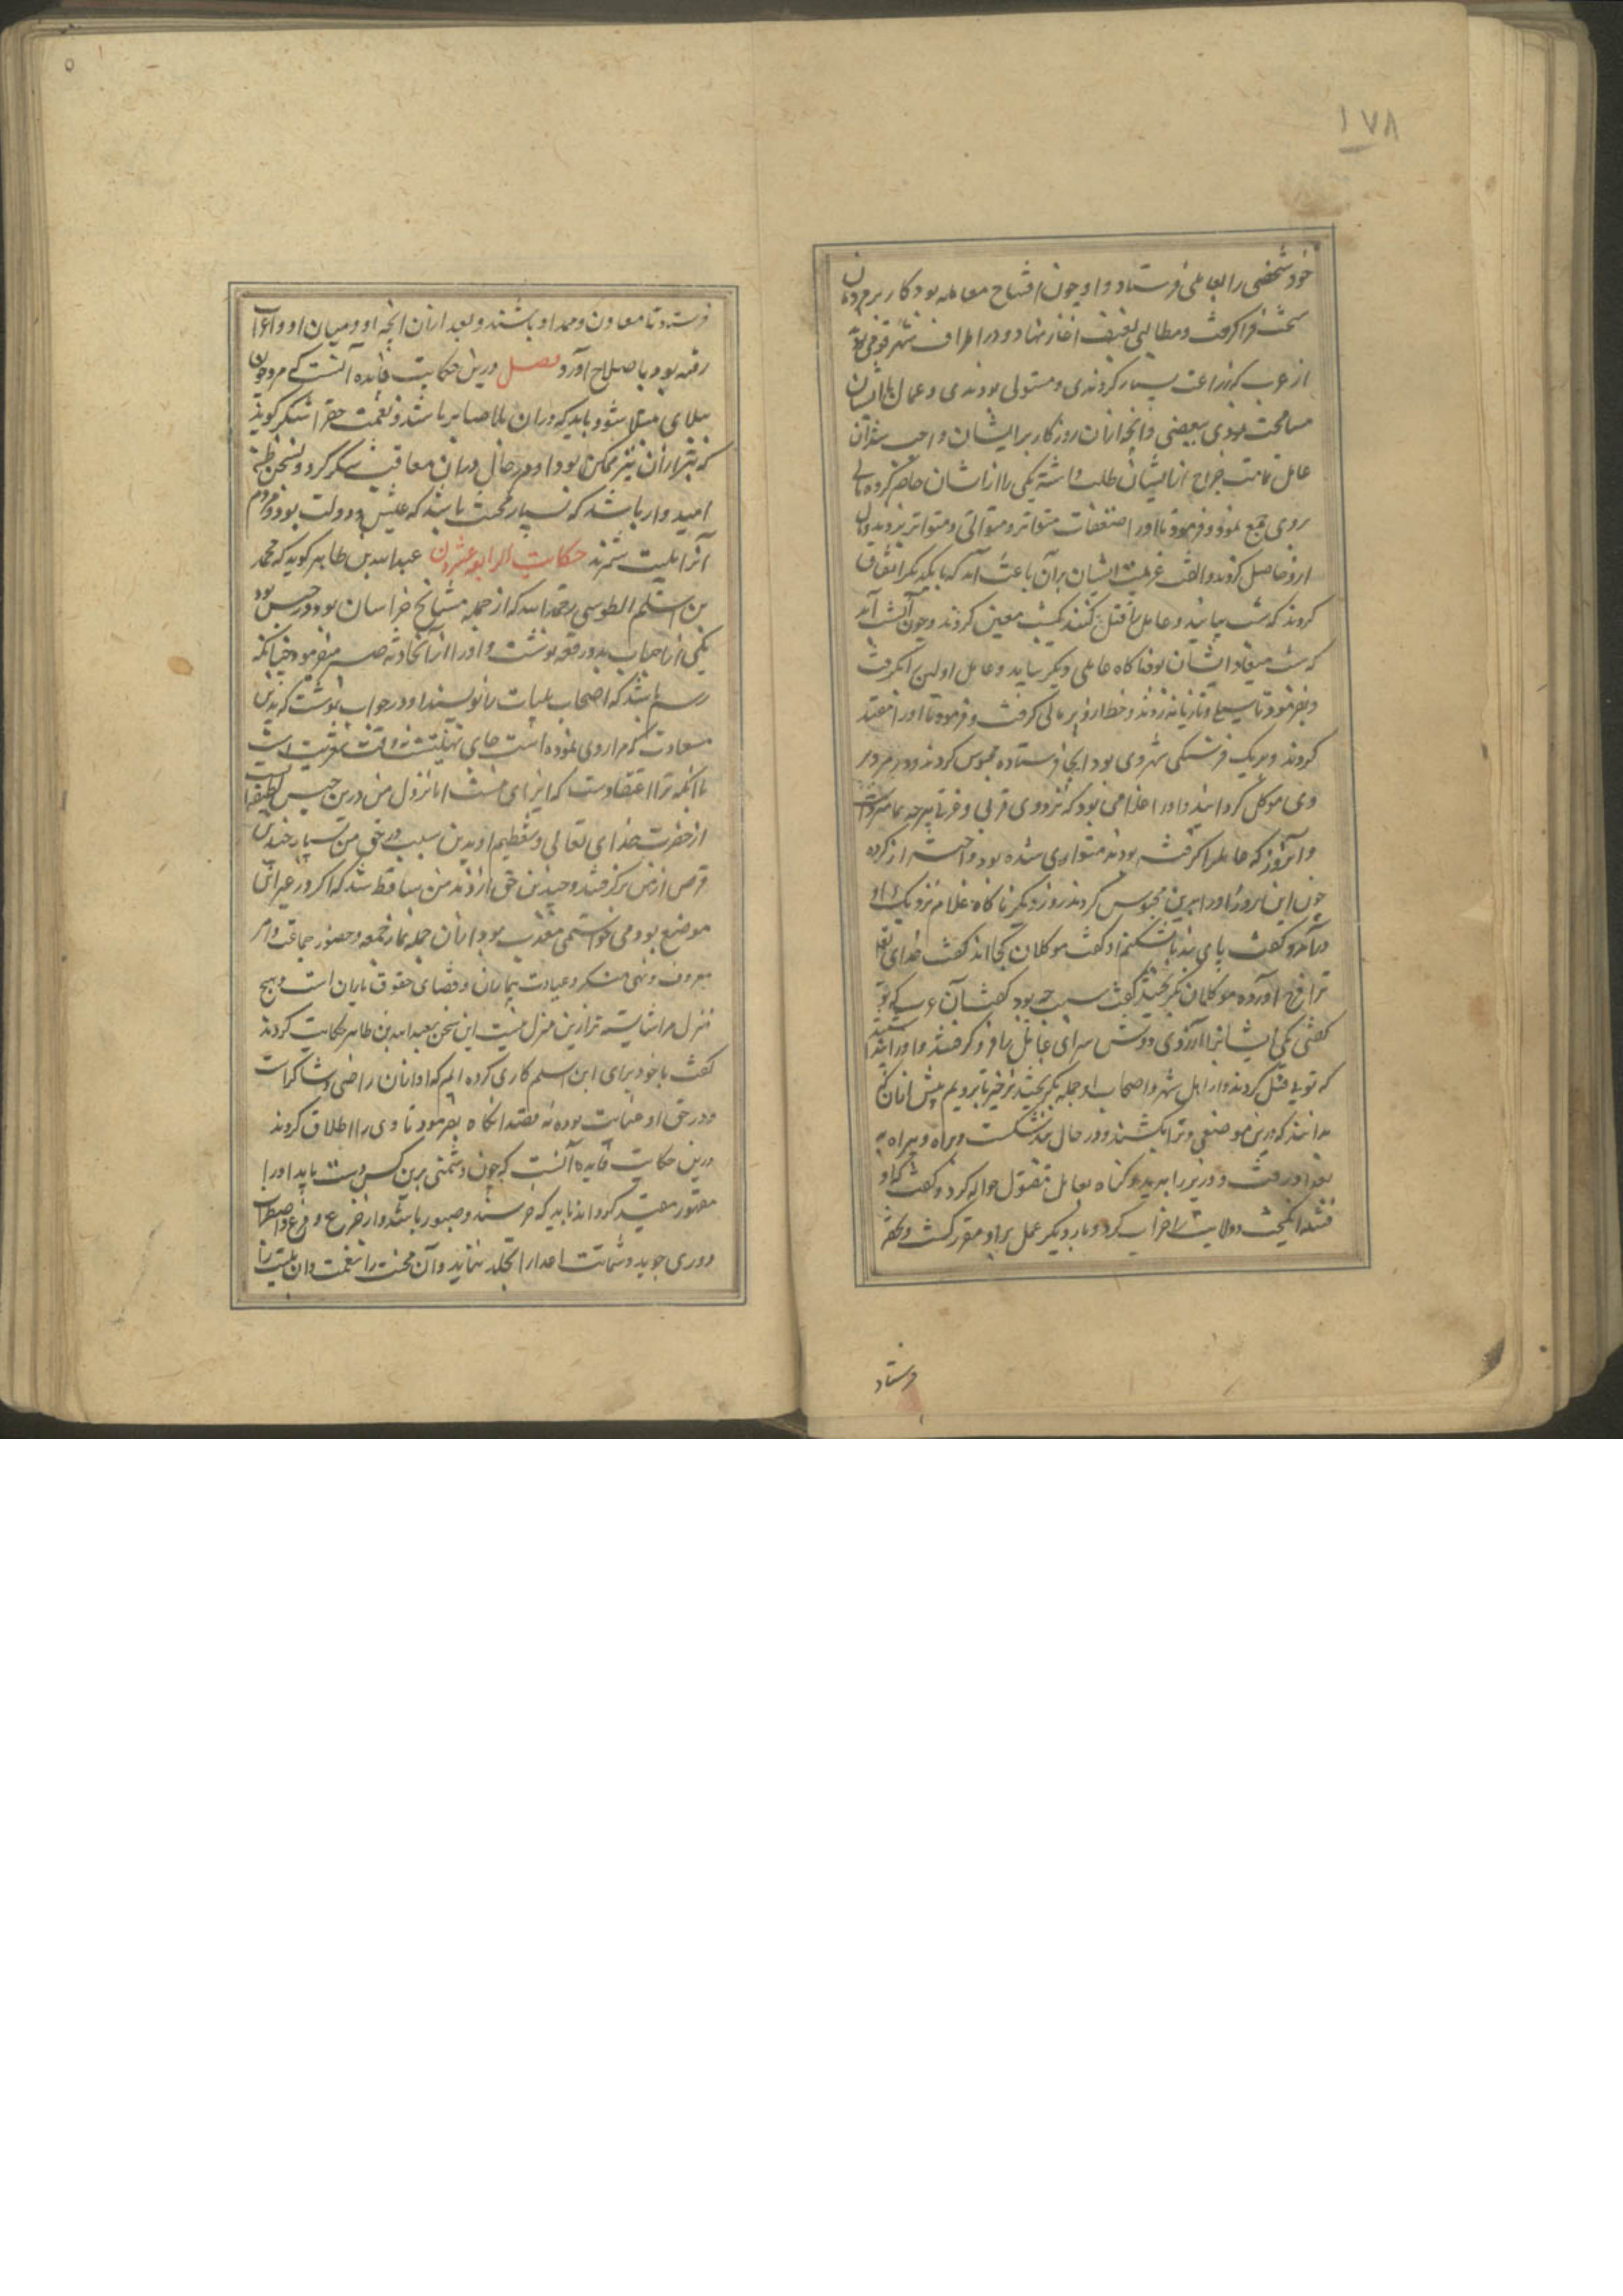 ۱۷۸
خود شخصی را بعاملی فرستاد و او چون افتتاح معامله بود کار بر مردمان
سخت فرا گرفت و مطالبی بعنف آغاز نهاد و در اطراف شهر قومی بود
از عرب که زراعت بسیار کردندی و مستولی بودندی و عمال با ایشان
مسامحت نمودی ببعضی و آنچه از آن روزگار بر ایشان واجب شد آن
عامل تمامت خراج از ایشان طلب داشته یکی را از اشان حاضر کرده
روی جمع نمود و فرمود تا او را صفعات متواتر و متوالی و متواتر بزدند و مال
ازو حاصل کردند و الف عزیمت ایشان بر آن باعث آمد که با یکدیگر اتفاق
کردند که شب بیایند و عامل را قتل کنند یکشب معین کردند و چون آن شب آمد
که شب میعاد ایشان بود ناگاه عاملی دیگر بیاید و عامل اولین را بگرفت
و بفرمود تا سیلی و تازیانه زدند و خط ازو بر مالی گرفت و فرمود تا او را مقید
کردند و بر یک فرسنگی شهر دهی بود آنجا فرستاده محبوس کردند و ده مرد بر
وی موکل گردانیدند و او را غلامی بود که نزد وی قربی و
و آنروز که عامل را گرفته بودند متواری شده بود و احتراز کرده
چون این امروز او را برین محبوس کردند روز دیگر ناگاه غلام نزدیک او
درآمد و گفت پای بند بشکنم او گفت موکلان کجا اند گفت خدای تعالی
ترا فرج آورده موکلان بگریختند گفت سبب چه بود گفت آن عرب که تو
گفتی یکی ایشانرا آرزوی دوش سرای عامل را فرو گرفتند و او را بپندار
که تویی قتل کردند و از اهل شهر و اصحاب او جمله بگریختند برخیز تا برویم پیش از آن که
بدانند که درین موضعی و ترا بکشند و در حال بند شکست و براه و بیراه به
بغداد رفت و وزیر را بدید و گناه بعامل مقتول حواله کرد و گفت که او
فتنه انگیخت و ولایت را خراب کرد و بار دیگر عمل بر او مقرر گشت و لشکر
فرستاد
فرستاد تا معاون و ممد او باشند و بعد از آن آنچه او و میان او و اعراب
رفته بود باصلاح آورد فصل درین حکایت فائده آنست که مرد چون
ببلای مبتلا شود باید که در آن بلا صابر باشد و نعمت حق را شکر گوید
که بتر از آن نیز ممکن بود و در هر حال در آن معاقب شکر کرد و بحسن ظن
امیدوار باشد که بسیار محنت باشد که عیش و دولت بود و مردم
آنرا بلیت شمرند حکایت الرابع عشرون عبدالله بن طاهر گوید که محمد
بن اسلم الطوسی رحمة الله که از جمله مشایخ خراسان بود در حبس بود
یکی از احباب بدو رقعه نوشت و او را از آن حادثه صبر میفرمود چنانکه
رسم باشد که اصحاب بلیات را نویسند او در جواب نوشت که بدین
سعادت که مرا روی نموده است جای تهنیتست نه وقت تعزیت است
با آنکه ترا اعتقادست که ایزای منست اما نزول من درین حبس لطیفه
از حضرت خدای تعالی و تعظیم او بدین سبب در حق من بسیار چندین
فرض از من برگرفتند و چندین حق از ذمه من ساقط شد که اگر در غیر این
موضع بودمی نخواستمی معذب بود از آن جمله نماز جمعه و حضور جماعت و امر
بمعروف و نهی منکر و عیادت بیماران و قضای حقوق یاران است و هیچ
منزل مرا شایسته تر ازین منزل نیست این سخن بعبدالله بن طاهر حکایت کردند
گفت با خود برای ابن اسلم کاری کرده ایم که او از آن راضی و شاکراست
و در حق او عنایت بوده نه قصد آنگاه بفرمود تا وی را اطلاق کردند
درین حکایت فایده آنست که چون دشمنی برین کس دست یابد او را
مقهور و مقید گرداند باید که خرسند و صبور باشد و از جزع و فزع و اضطراب
دوری جوید و شماتت اعدا را تجلد نماید و آن محنت را نعمت و آن بلیت را